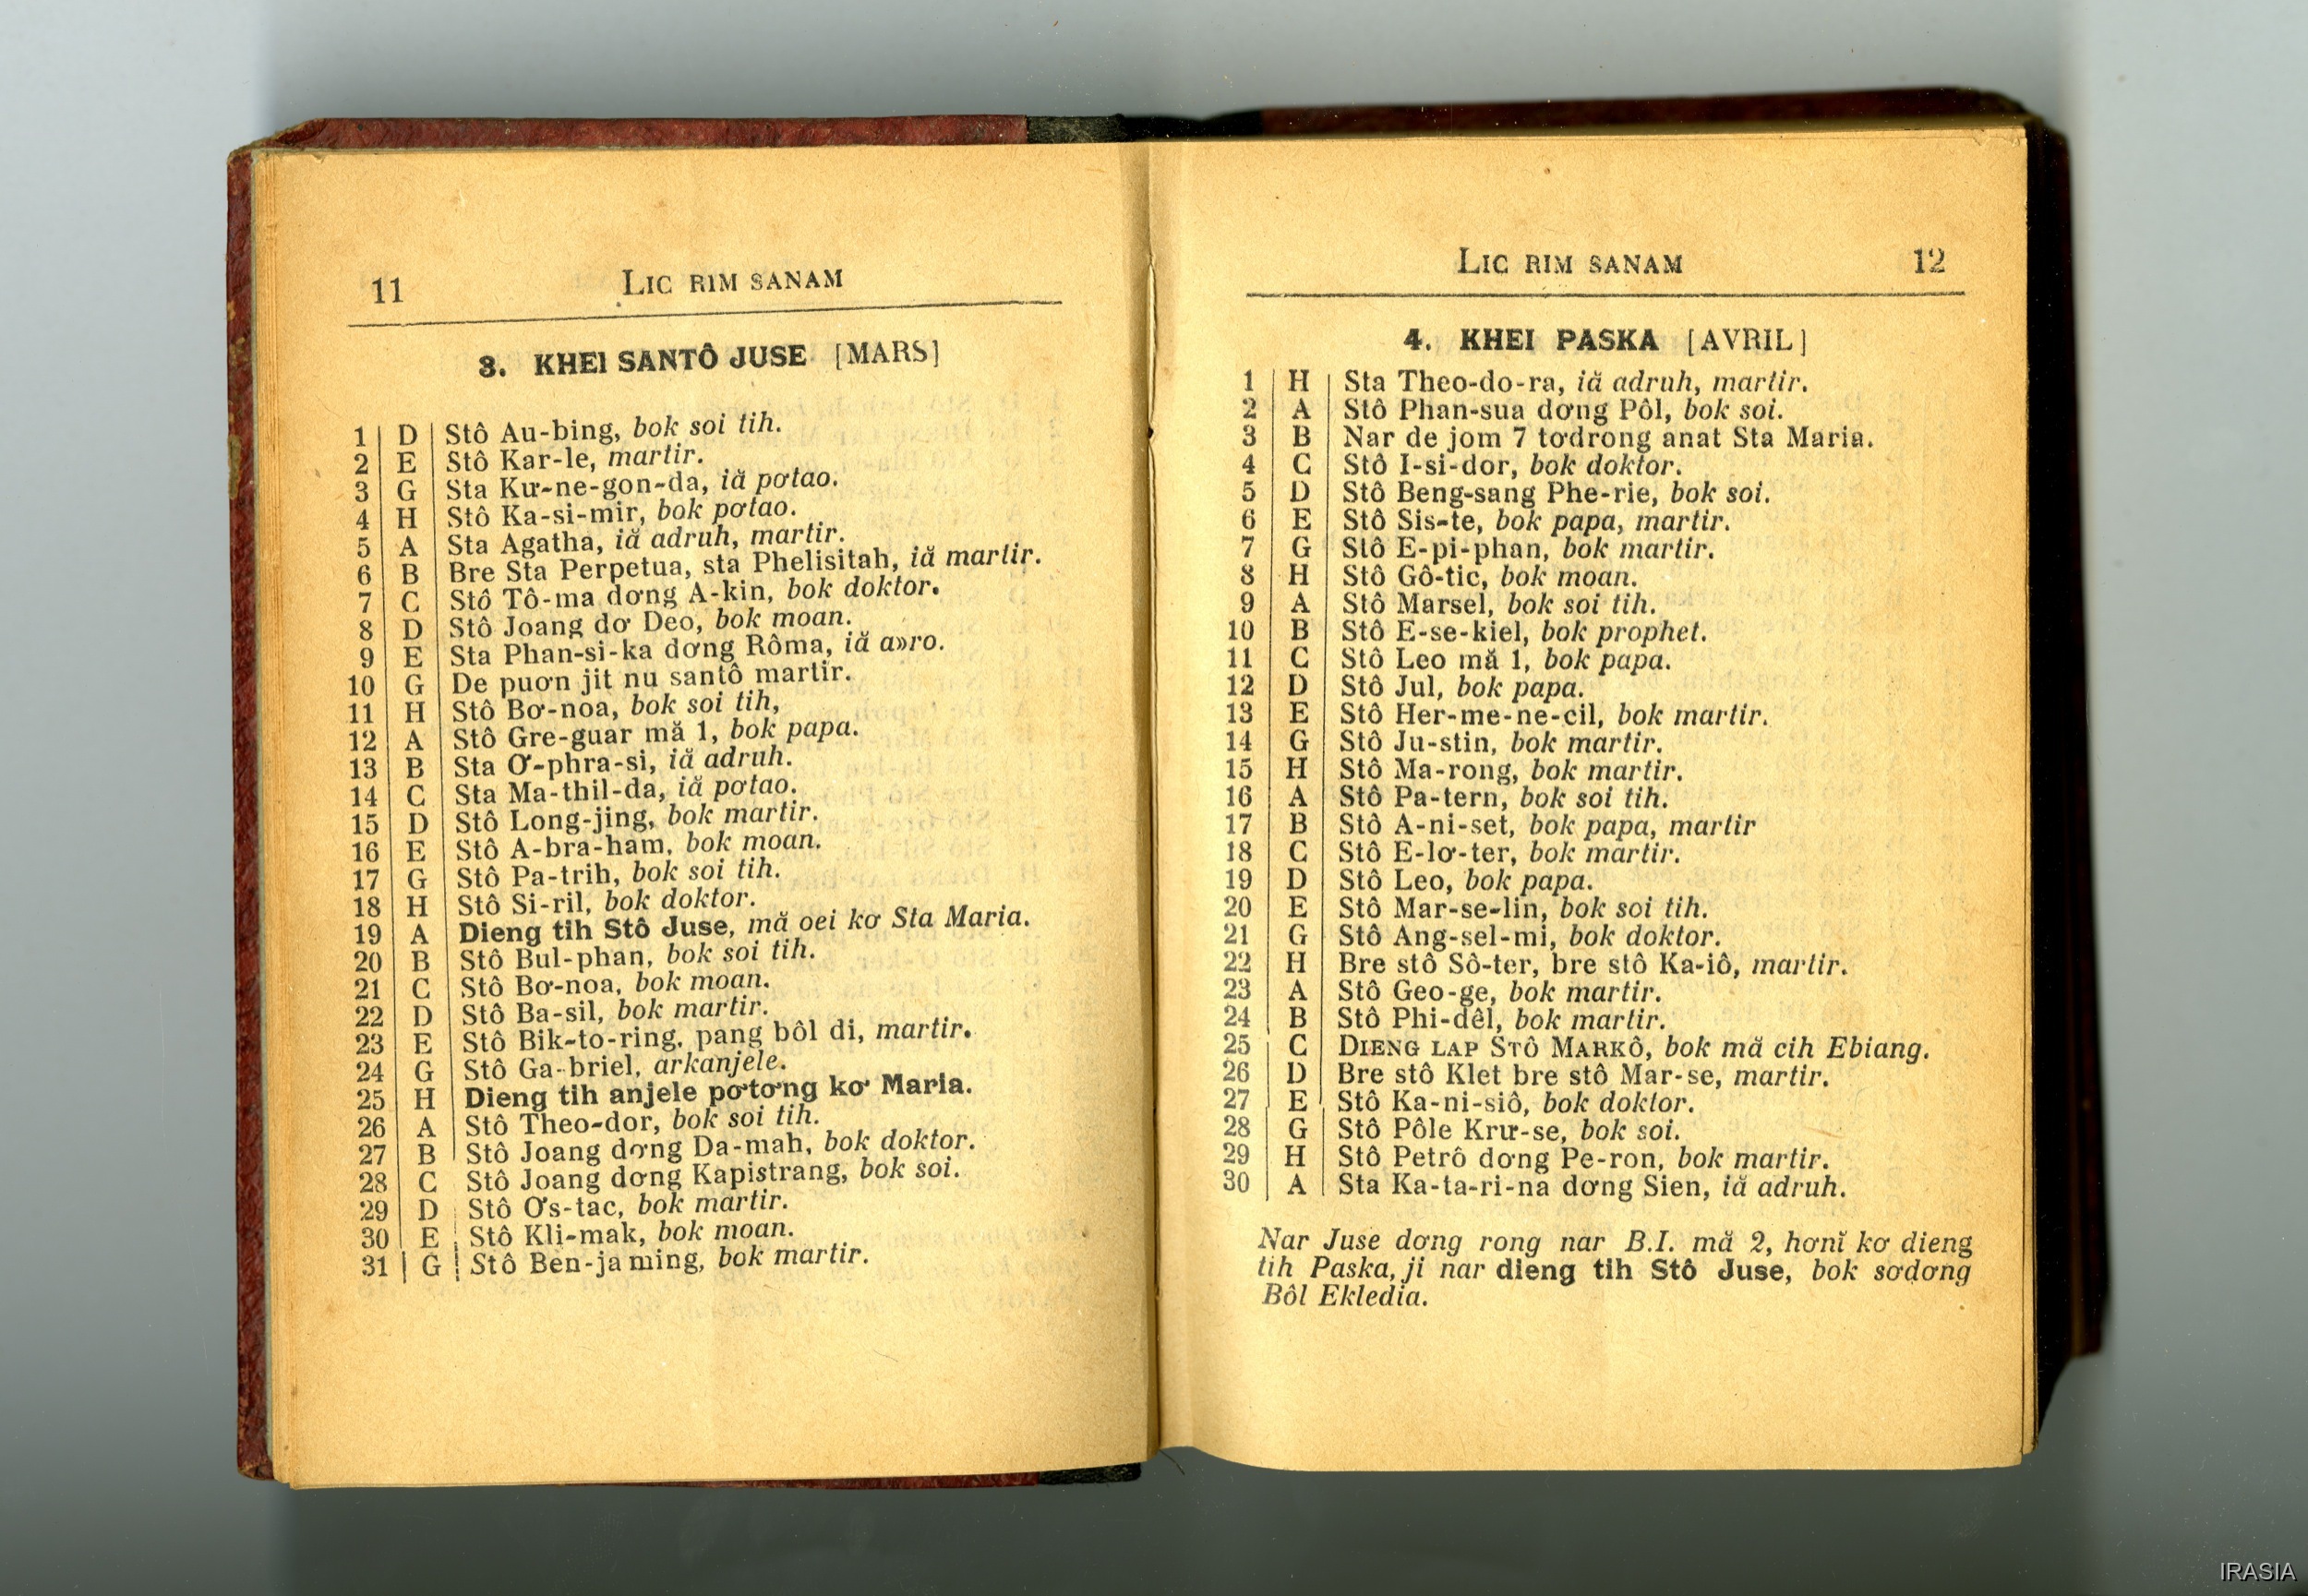 11 LIC RIM SANAM
3. KHEI SANTÔ JUSE [MARS]
1 D Stô Au-bing, bok soi tih.
2 E Stô Kar-le, martir.
3 G Sta Kư-ne-gon-da, iă pơtao.
4 H Stô Ka-si-mir, bok pơtao.
5 A Sta Agatha, iă adruh, martir.
6 B Bre Sta Perpetua, sta Phelisitah, iă martir.
7 C Stô Tô-ma dơng A-kin, bok doktor.
8 D Stô Joang dơ Deo, bok moan.
9 E Sta Phan-si-ka dơng Rôma, iă a»ro.
10 G De puơn jit nu santô martir.
11 H Stô Bơ-noa, bok soi tih,
12 A Stô Gre-guar mă 1, bok papa.
13 B Sta Ơ-phra-si, iă adruh.
14 C Sta Ma-thil-da, iă pơtao.
15 D Stô Long-jing, bok martir.
16 E Stô A-bra-ham, bok moan.
17 G Stô Pa-trih, bok soi tih.
18 H Stô Si-ril, bok doktor.
19 A Dieng tih Stô Juse, mă oei kơ Sta Maria.
20 B Stô Bul-phan, bok soi tih.
21 C Stô Bơ-noa, bok moan.
22 D Stô Ba-sil, bok martir.
23 E Stô Bik-to-ring, pang bôl di, martir.
24 G Stô Ga-briel, arkanjele.
25 H Dieng tih anjele pơtơng kơ Maria.
26 A Stô Theo-dor, bok soi tih.
27 B Stô Joang dơng Da-mah, bok doktor.
28 C Stô Joang dơng Kapistrang, bok soi.
29 D Stô Ơs-tac, bok martir.
30 E Stô Kli-mak, bok moan.
31 G Stô Ben-ja ming, bok martir.
LIC RIM SANAM 12
4. KHEI PASKA [AVRIL]
1 H Sta Theo-do-ra, iă adruh, martir.
2 A Stô Phan-sua dơng Pôl, bok soi.
3 B Nar de jom 7 tơdrong anat Sta Maria.
4 C Stô I-si-dor, bok doktor.
5 D Stô Beng-sang Phe-rie, bok soi.
6 E Stô Sis-te, bok papa, martir.
7 G Stô E-pi-phan, bok martir.
8 H Stô Gô-tic, bok moan.
9 A Stô Marsel, bok soi tih.
10 B Stô E-se-kiel, bok prophet.
11 C Stô Leo mă 1, bok papa.
12 D Stô Jul, bok papa.
13 E Stô Her-me-ne-cil, bok martir.
14 G Stô Ju-stin, bok martir.
15 H Stô Ma-rong, bok martir.
16 A Stô Pa-tern, bok soi tih.
17 B Stô A-ni-set, bok papa, martir
18 C Stô E-lơ-ter, bok martir.
19 D Stô Leo, bok papa.
20 E Stô Mar-se-lin, bok soi tih.
21 G Stô Ang-sel-mi, bok doktor.
22 H Bre stô Sô-ter, bre stô Ka-iô, martir.
23 A Stô Geo-ge, bok martir.
24 B Stô Phi-dêl, bok martir.
25 C DIENG LAP STÔ MARKÔ, bok mă cih Ebiang.
26 D Bre stô Klet bre stô Mar-se, martir.
27 E Stô Ka-ni-siô, bok doktor.
28 G Stô Pôle Krư-se, bok soi.
29 H Stô Petrô dơng Pe-ron, bok martir.
30 A Sta Ka-ta-ri-na dơng Sien, iă adruh.
Nar Juse dơng rong nar B.I. mă 2, hơnĭ kơ dieng
tih Paska, ji nar dieng tih Stô Juse, bok sơdơng
Bôl Ekledia.
IRASIA